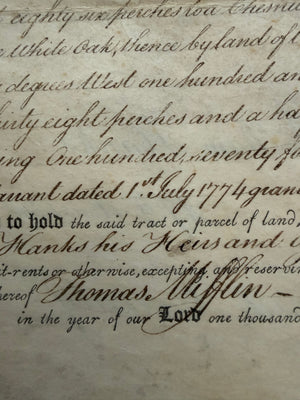 eighty six perches to a Chesnut
White Oak, thence by land of
degrees West one hundred an
thirty eight perches and a ha
ing One hundred, seventy fo
arrant dated 1st July 1774 gran
to hold the said tract or parcel of land,
Hanks his Heirs and
it-rents or otherwise, excepting and reservin
hereof Thomas Mifflin -
in the year of our Lord one thousand